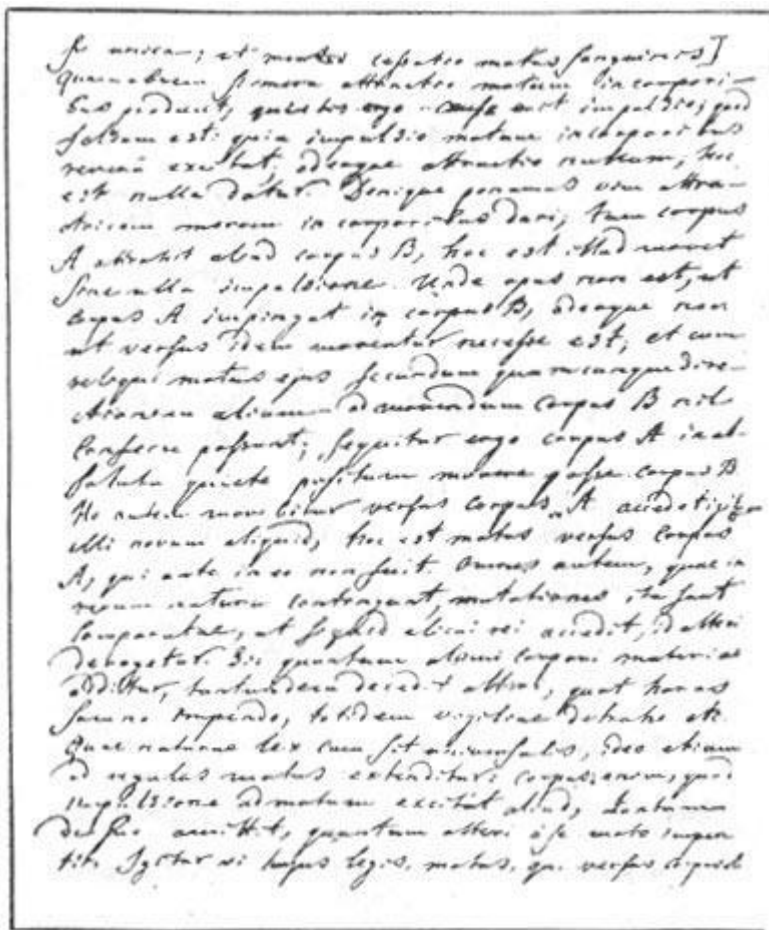 sit unica; et mortis cessatio motus sanguinis]
Quamobrem si mera attractio motum in corpori-
bus producit, quietis ergo causa erit impulsio; quod
falsum est: quia impulsio motum in corporibus
revera excitat, adeoque attractio nullum, hoc
est nulla datur. Denique ponamus vim attra-
ctricem meram in corporibus dari; tum corpus
A attrahit aliud corpus B, hoc est illud movet
sine ulla impulsione. Unde opus non est, ut
corpus A impingat in corpus B, adeoque non
ut versus idem moveatur necesse est; et cum
reliqui motus ejus secundum quamcunque dire-
ctionem aliam ad movendum corpus B nil
conferre possunt; sequitur ergo corpus A in ab-
soluta quiete positum movere posse corpus B
Hoc autem movebitur versus corpus A accedet igitur
illi novum aliquid, hoc est motus versus corpus
A, qui ante in eo non fuit. Omnes autem, quae in
rerum natura contingunt, mutationes ita sunt
comparatae, ut si quid alicui rei accedit, id alteri
derogetur. Sic quantum alicui corpori materiae
additur, tantundem decedit alteri, quot horas
somno impendo, totidem vigiliae detraho etc.
Quae naturae lex cum sit universalis, ideo etiam
ad regulas motus extenditur: corpus enim, quod
impulsione ad motum excitat aliud, tantum
de suo amittit, quantum alteri a se moto imper-
tit. Igitur vi hujus legis, motus, qui versus corpus